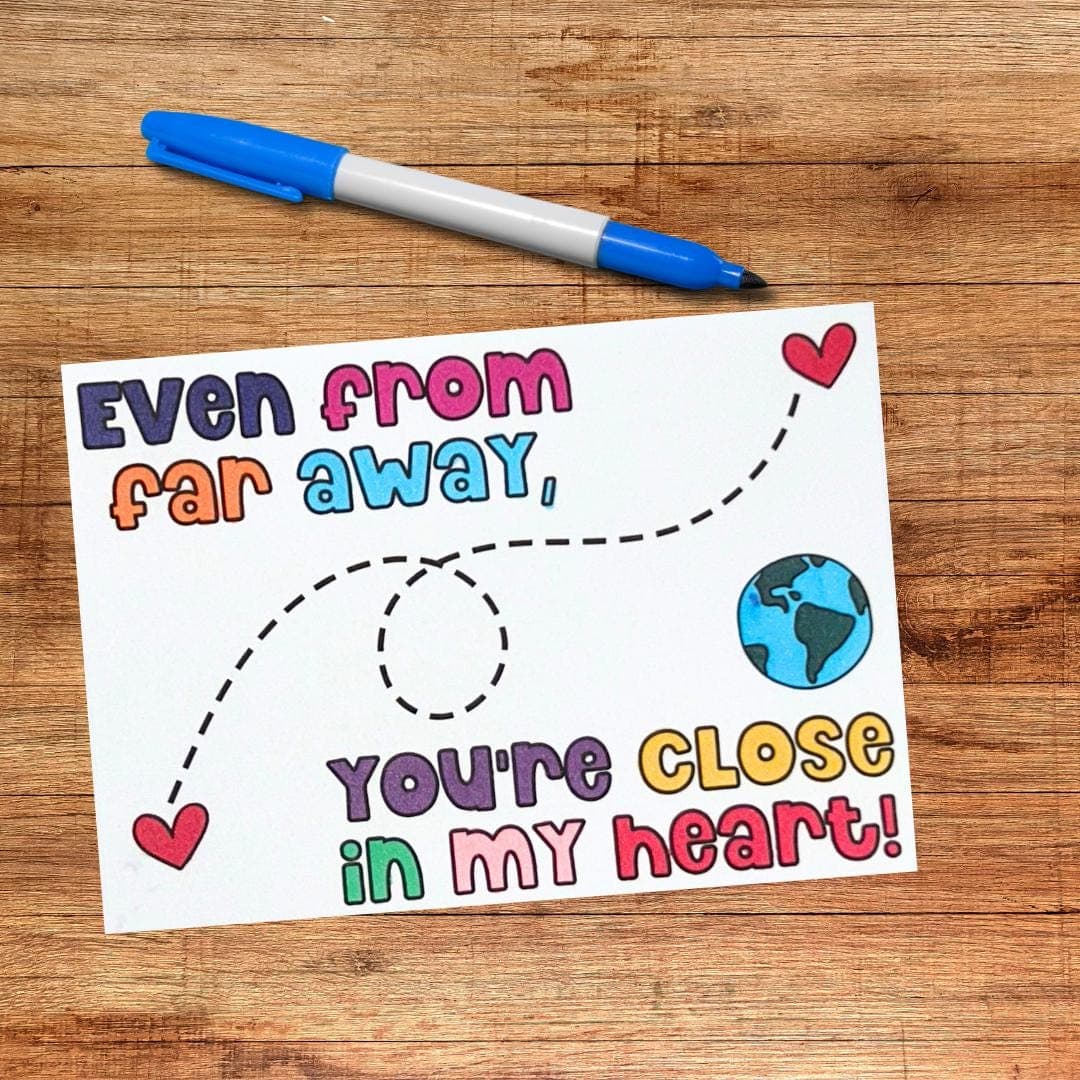 Even from
far away,
You're close
in my heart!